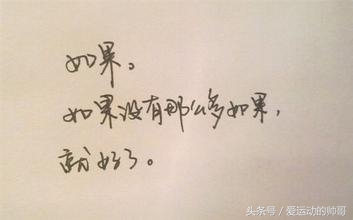 如果。
如果没有那么多如果，
就好了。
头条号 / 爱运动的帅哥